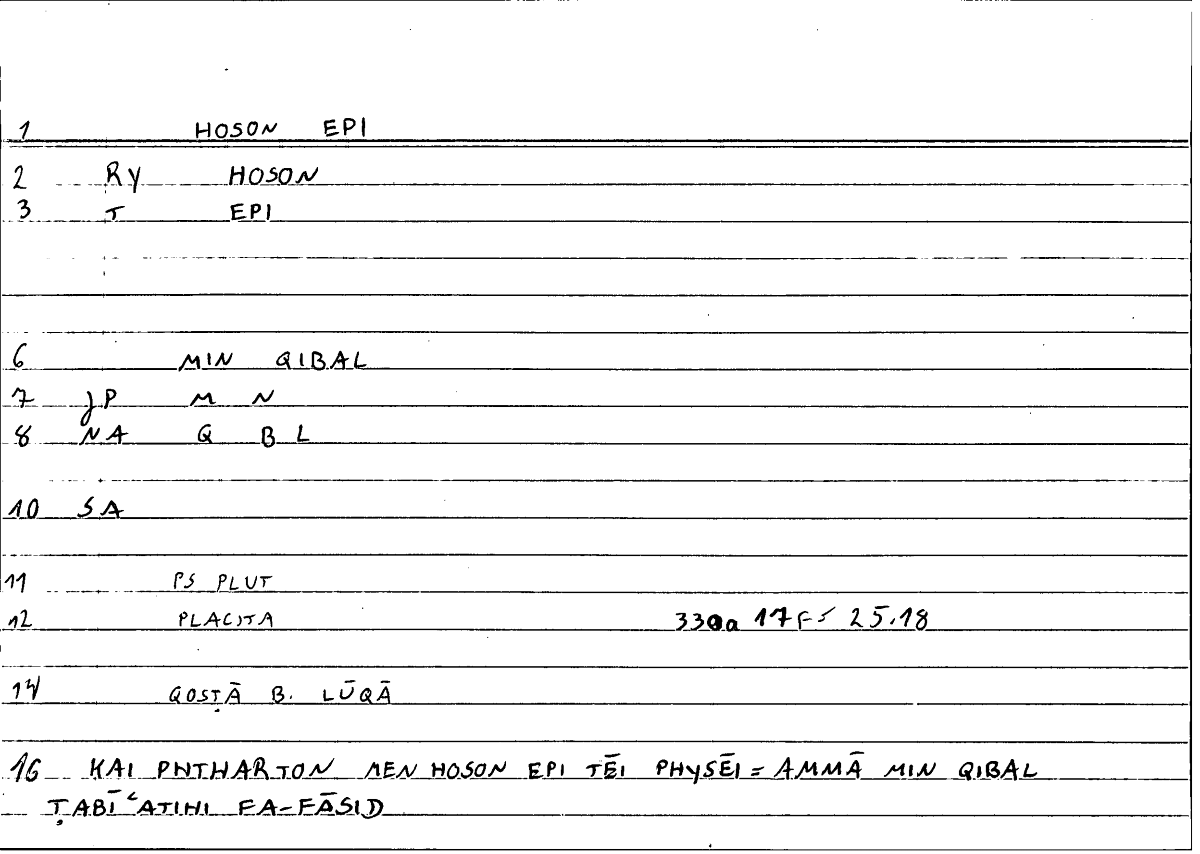 1 HOSON EPI
2 RY HOSON
3 T EPI
6 MIN QIBAL
7 JP M N
8 NA Q B L
10 SA
11 PS PLUT
12 PLACITA 330a 17 F< 25.18
14 QOSṬĀ B. LŪQĀ
16 KAI PHTHARTON MEN HOSON EPI TĒI PHYSĒI = AMMĀ MIN QIBAL
ṬABĪʿATIHI FA-FĀSID